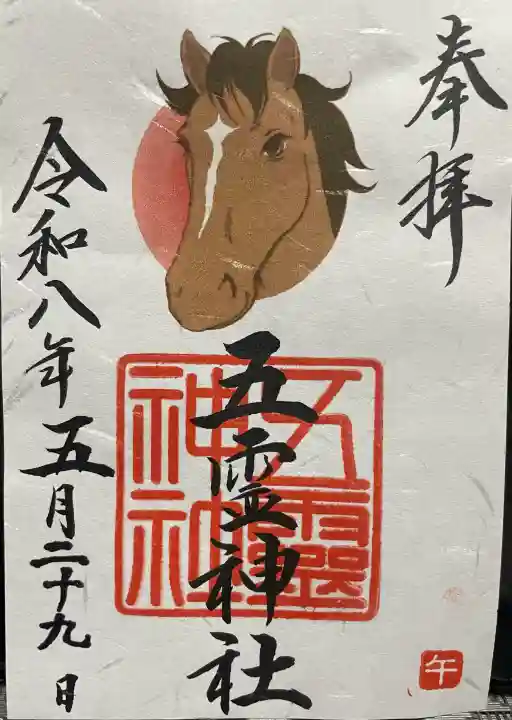 奉拝
五霊神社
五靈神社
令和八年五月二十九日
午